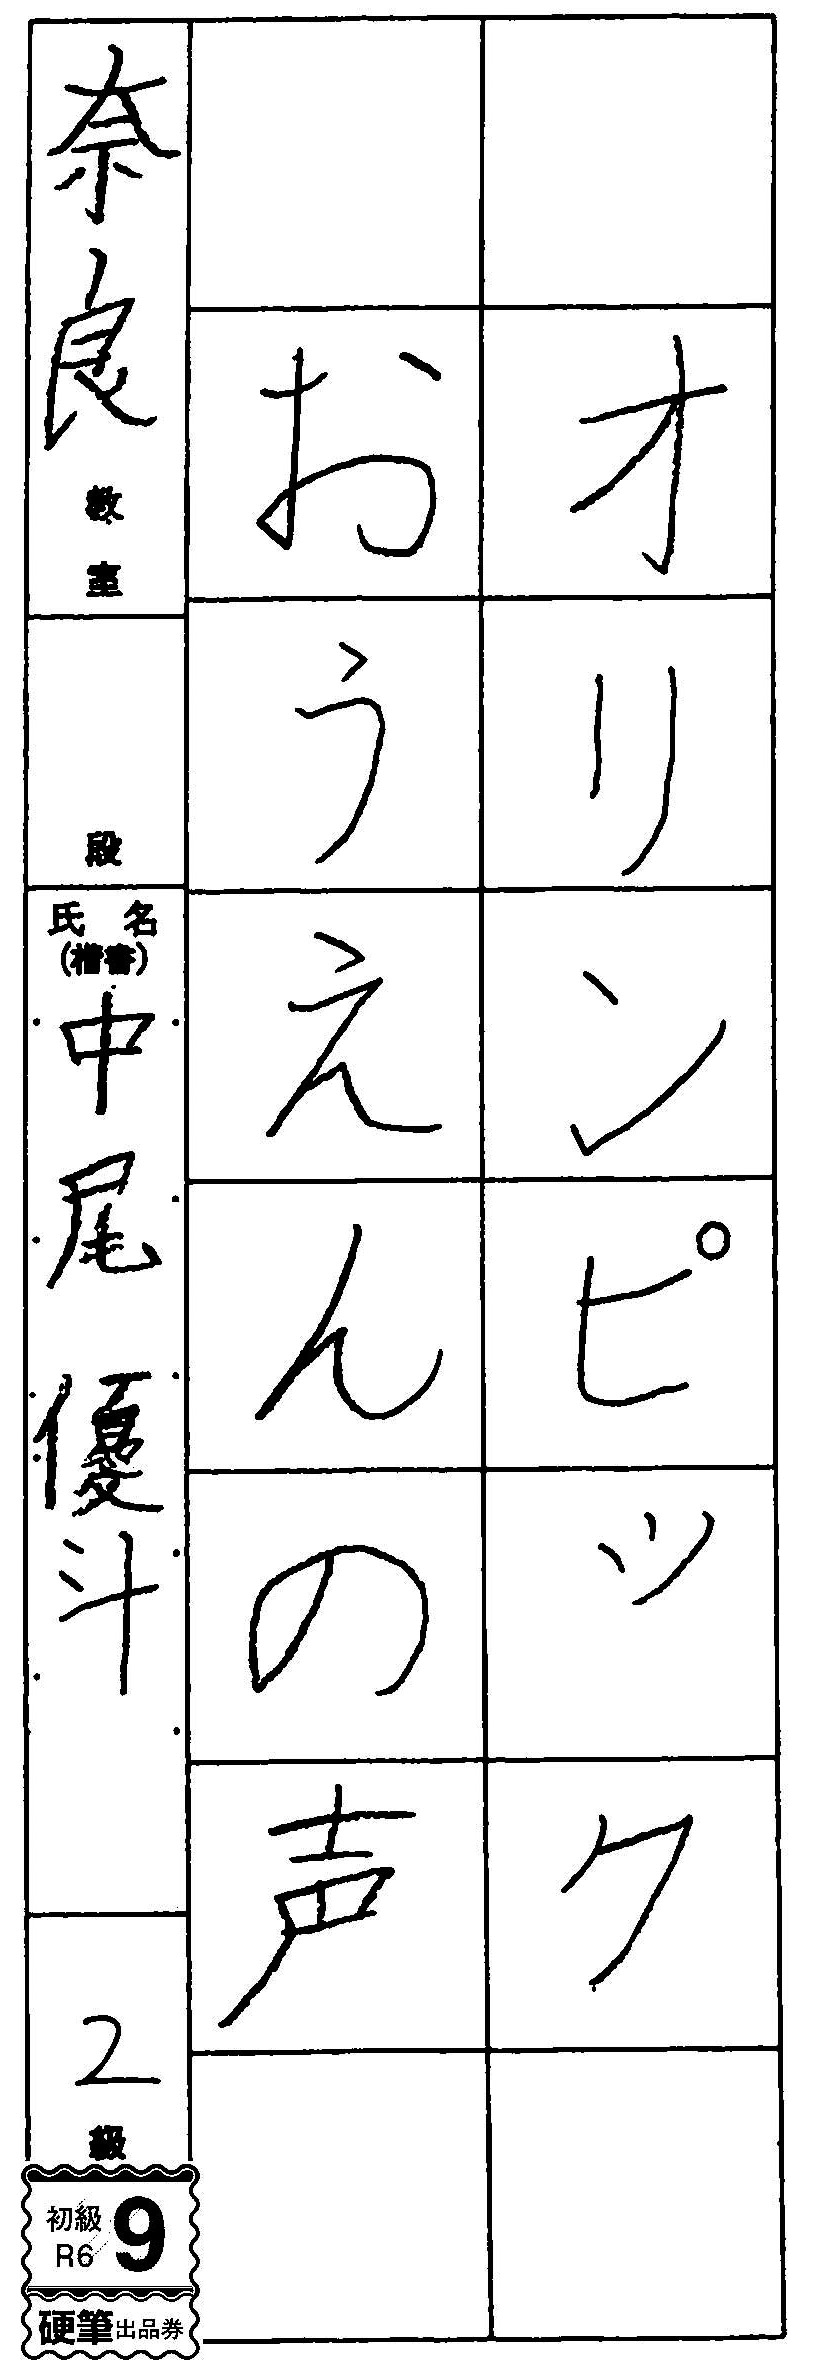 オリンピック
おうえんの声
奈良教室
段
氏名
(楷書)
中尾優斗
2級
初級
R6
9
硬筆出品券